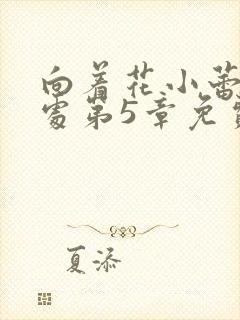 向着花小蕾
处第5章免费
夏添